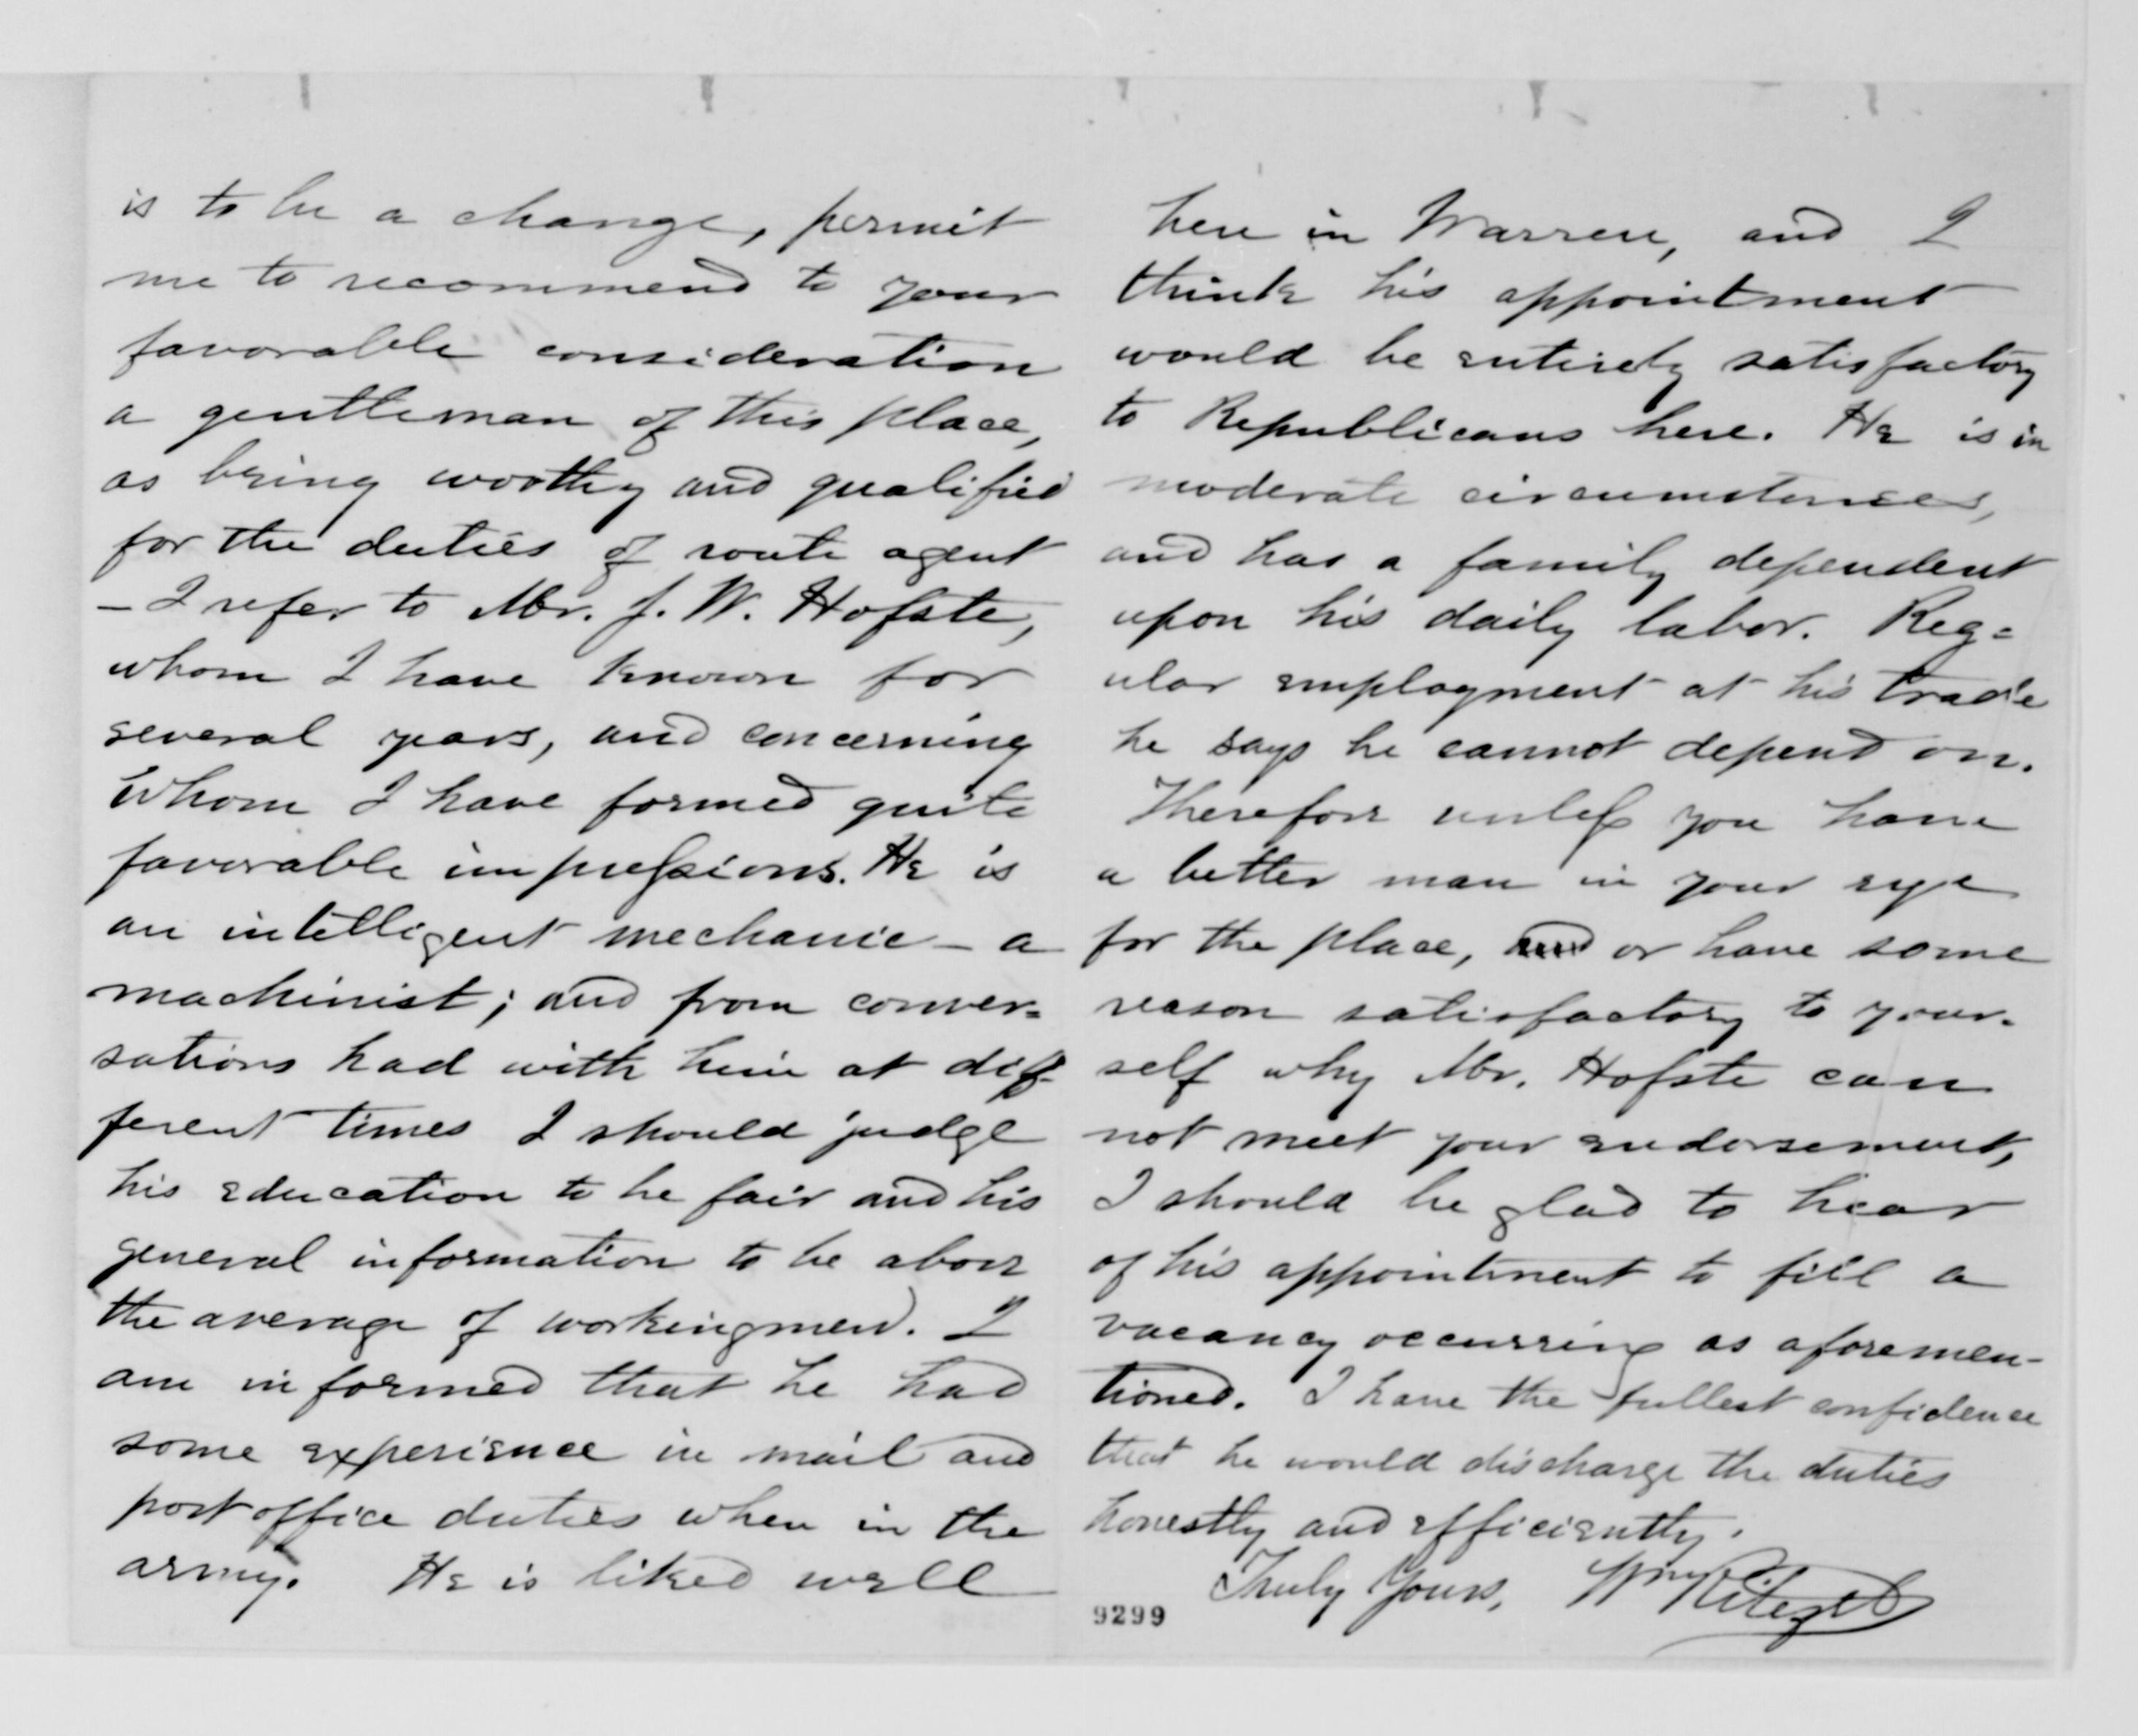 is to be a change, permit
me to recommend to your
favorable consideration
a gentleman of this place,
as being worthy and qualified
for the duties of route agent
— I refer to Mr. J. W. Hofste,
whom I have known for
several years, and concerning
whom I have formed quite
favorable impressions. He is
an intelligent mechanic — a
machinist; and from conver=
sations had with him at dif-
ferent times I should judge
his education to be fair and his
general information to be above
the average of workingmen. I
am informed that he had
some experience in mail and
post office duties when in the
army. He is liked well
here in Warren, and I
think his appointment
would be entirely satisfactory
to Republicans here. He is in
moderate circumstances,
and has a family dependent
upon his daily labor. Reg=
ular employment at his trade
he says he cannot depend on.
Therefore unless you have
a better man in your eye
for the place, and or have some
reason satisfactory to your-
self why Mr. Hofste can
not meet your endorsement,
I should be glad to hear
of his appointment to fill a
vacancy occurring as aforemen-
tioned. I have the fullest confidence
that he would discharge the duties
honestly and efficiently.
Truly Yours, Wm Ritezel
9299